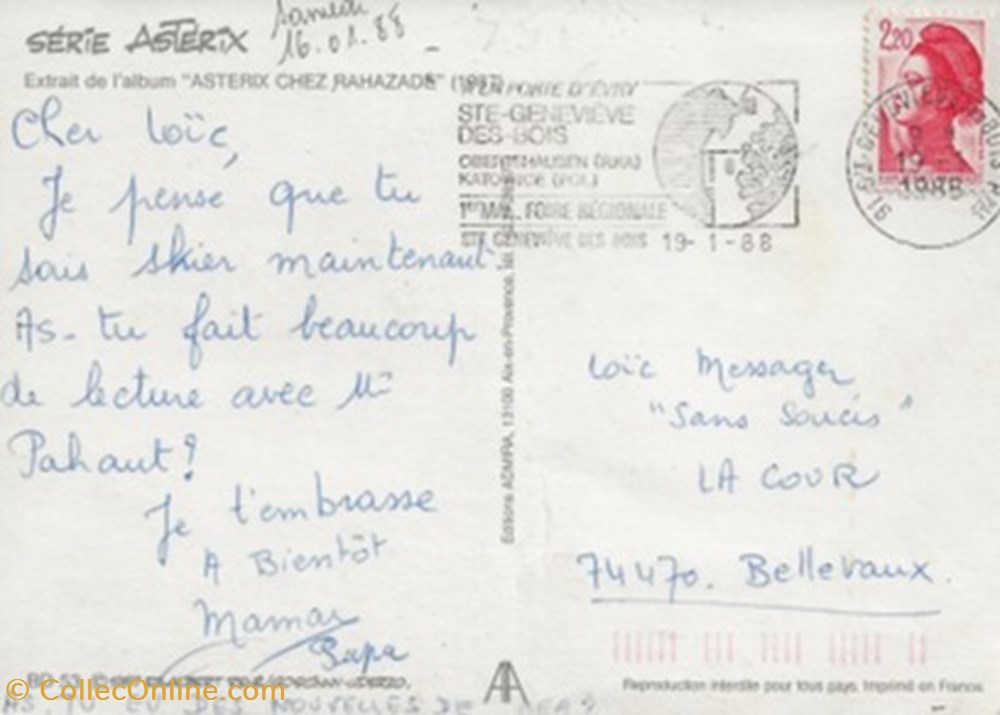 SÉRIE ASTERIX
Samedi
16.01.88
Extrait de l'album "ASTERIX CHEZ RAHAZADE" (1987)
Cher Loïc,
Je pense que tu
sais skier maintenant.
As-tu fait beaucoup
de lecture avec Mr
Pahaut?
Je t'embrasse
A Bientôt
Maman
Papa
AS-TU EU DES NOUVELLES DE
PORTE D'ÉVRY
STE-GENEVIÈVE
DES-BOIS
OBERHAUSEN (RFA)
KATOWICE (POL)
1er MAI, FOIRE RÉGIONALE
STE GENEVIÈVE DES BOIS 19-1-88
2,20
19-1
1988
Editions ADMIRA, 13100 Aix-en-Provence, tél.
Loïc Messager
"Sans Soucis"
LA COUR
74470. Bellevaux.
Reproduction interdite pour tous pays. Imprimé en France
© CollecOnline.com